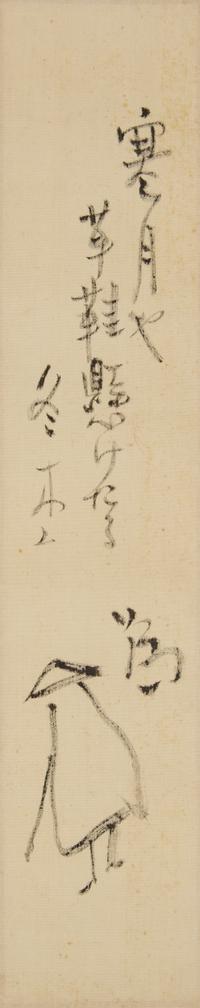 寒月や
草鞋懸けたる
冬木立
為